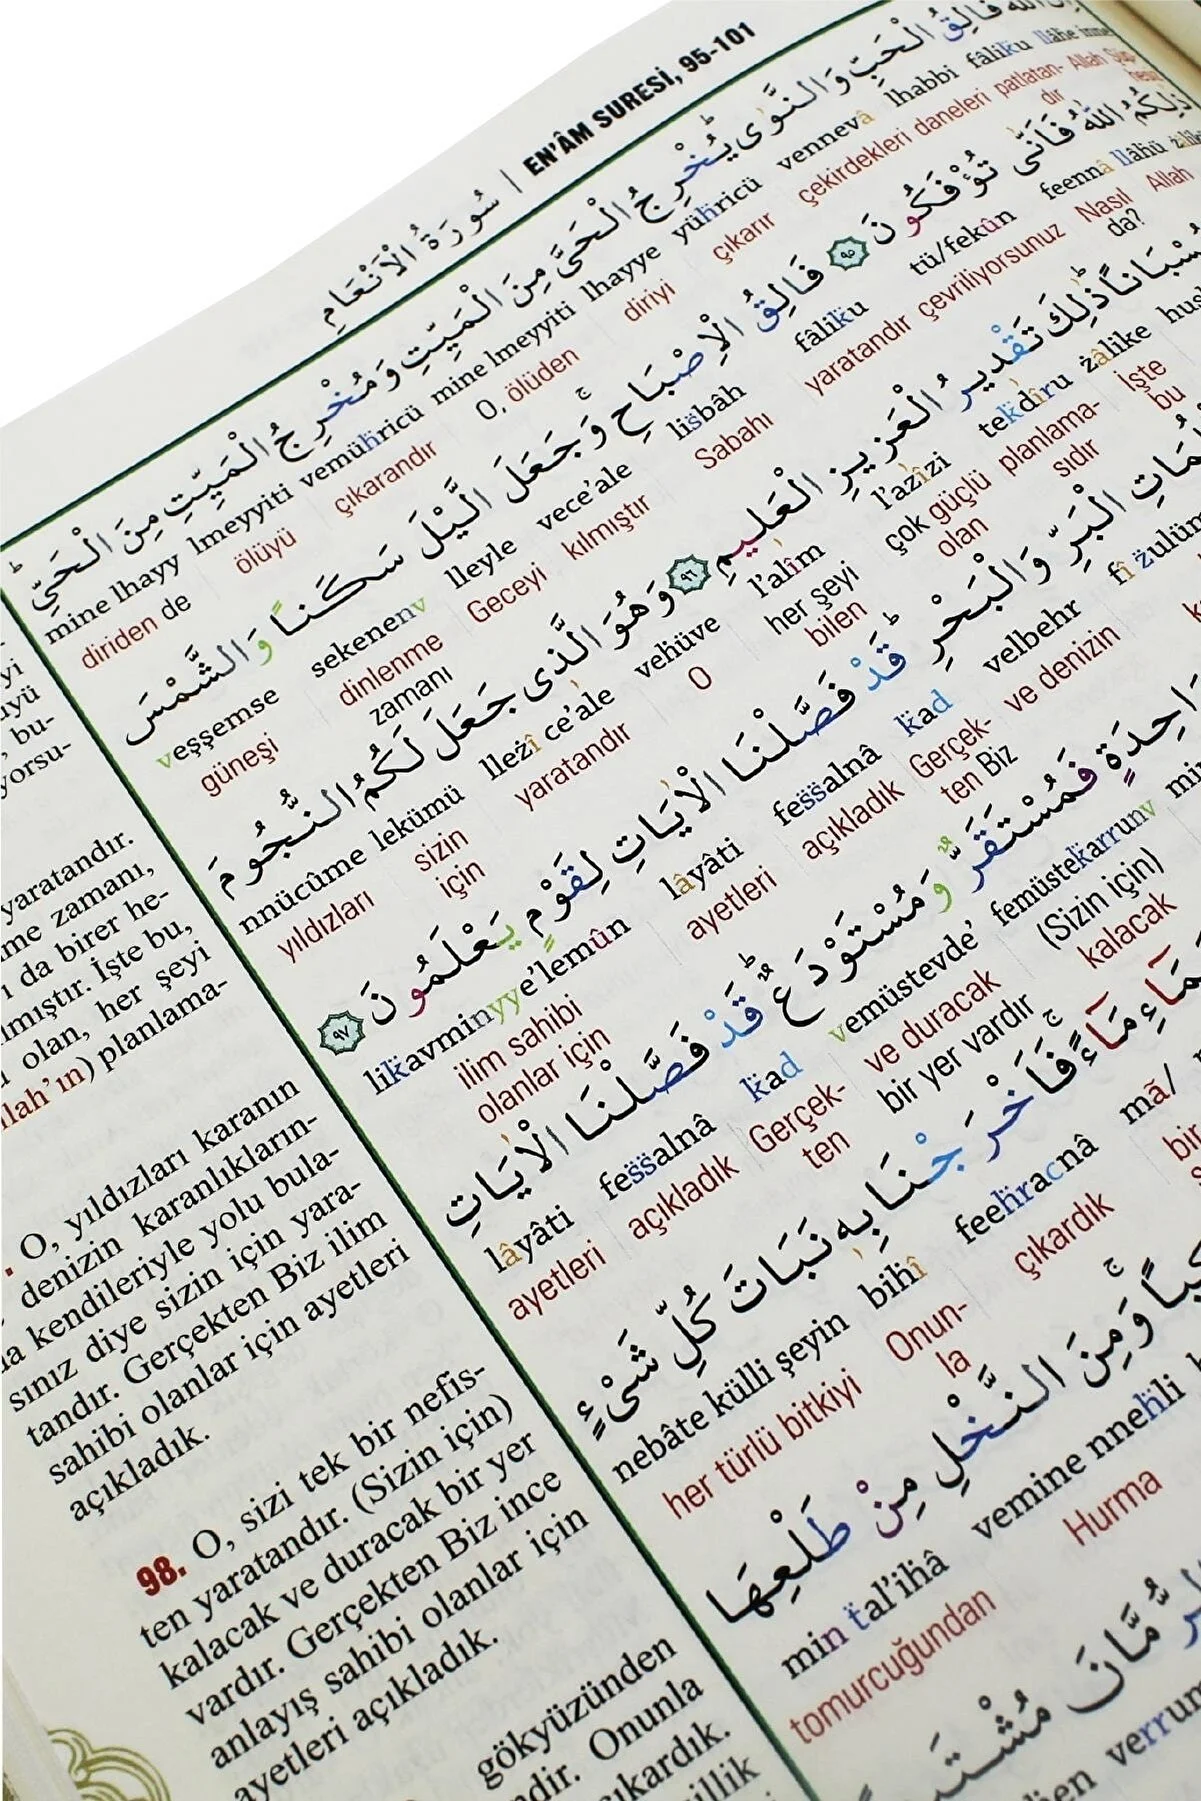 سُورَةُ الْاَنْعَامِ | EN'ÂM SURESİ, 95-101
فَالِقُ الْحَبِّ وَالنَّوٰى يُخْرِجُ الْحَىَّ مِنَ الْمَيِّتِ وَمُخْرِجُ الْمَيِّتِ مِنَ الْحَىِّ
mine lhayy lmeyyiti vemühricü mine lmeyyiti lhayye yühricü vennevâ lhabbi fâliku llâhe inne
diriden de ölüyü çıkarandır O, ölüden diriyi çıkarır çekirdekleri daneleri patlatan-dır Allah
ذٰلِكُمُ اللّٰهُ فَاَنّٰى تُؤْفَكُونَ ﴿٩٥﴾ فَالِقُ الْاِصْبَاحِ وَجَعَلَ الَّيْلَ سَكَنًا وَالشَّمْسَ
veşşemse sekenenv lleyle vece'ale lisbâh fâliku tü/fekûn feennâ llâhü
güneşi dinlenme zamanı Geceyi kılmıştır Sabahı yaratandır çevriliyorsunuz Nasıl da? Allah
ذٰلِكَ تَقْدِيرُ الْعَزِيزِ الْعَلِيمِ ﴿٩٦﴾ وَهُوَ الَّذِى جَعَلَ لَكُمُ النُّجُومَ
nnücûme lekümü llezî ce'ale vehüve l'alîm l'azîzi tekdîru zâlike
yıldızları sizin için yaratandır O her şeyi bilen çok güçlü olan planlama-sıdır İşte bu
الْبَرِّ وَالْبَحْرِ قَدْ فَصَّلْنَا الْاٰيَاتِ لِقَوْمٍ يَعْلَمُونَ ﴿٩٧﴾
likavminyye'lemûn lâyâti fessalnâ kad velbehr fî
ilim sahibi olanlar için ayetleri açıkladık Gerçek-ten Biz ve denizin
فَمُسْتَقَرٌّ وَمُسْتَوْدَعٌ قَدْ فَصَّلْنَا الْاٰيَاتِ
lâyâti fessalnâ kad vemüstevde' femüstekarrunv
ayetleri açıkladık Gerçek-ten ve duracak bir yer vardır (Sizin için) kalacak
مَاءً فَاَخْرَجْنَا بِهِ نَبَاتَ كُلِّ شَىْءٍ
nebâte külli şeyin bihî feehracnâ
her türlü bitkiyi Onun-la çıkardık
وَمِنَ النَّخْلِ مِنْ طَلْعِهَا
min tal'ihâ vemine nnehli
tomurcuğundan Hurma
yaratandır.
me zamanı,
da birer he-
mıştır. İşte bu,
olan, her şeyi
lah'ın) planlama-
O, yıldızları karanın
denizin karanlıkların-
kendileriyle yolu bula-
sınız diye sizin için yara-
tandır. Gerçekten Biz ilim
sahibi olanlar için ayetleri
açıkladık.
98. O, sizi tek bir nefis-
ten yaratandır. (Sizin için)
kalacak ve duracak bir yer
vardır. Gerçekten Biz ince
anlayış sahibi olanlar için
ayetleri açıkladık.
gökyüzünden
Onunla